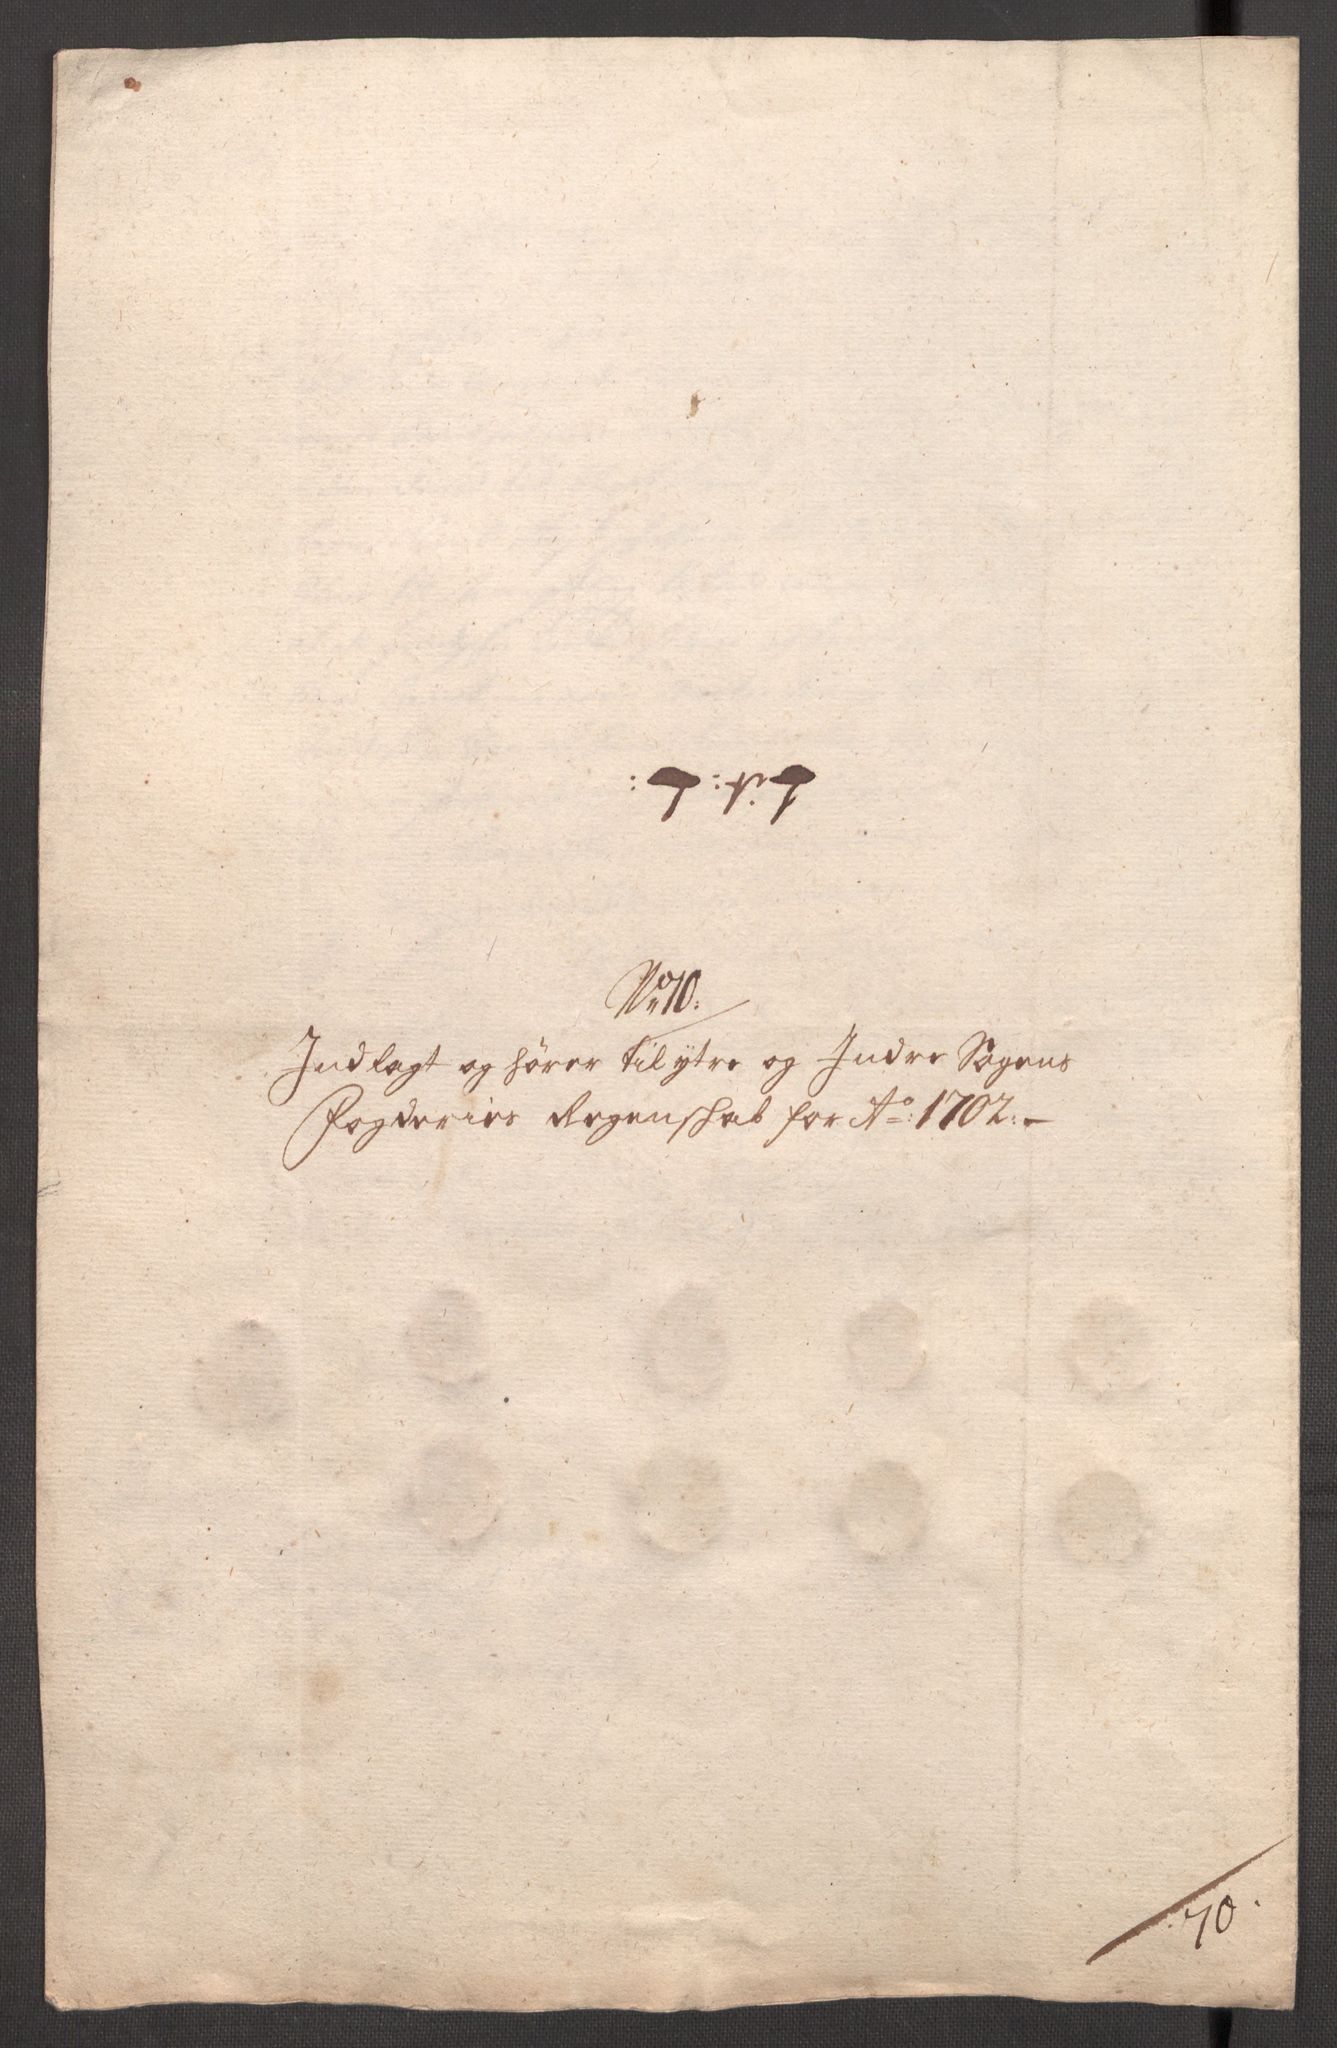 No 70:
Indlagt og hører til ytre og Indre Sogens
Fogderies Regenskab for Ao: 1702:
70.